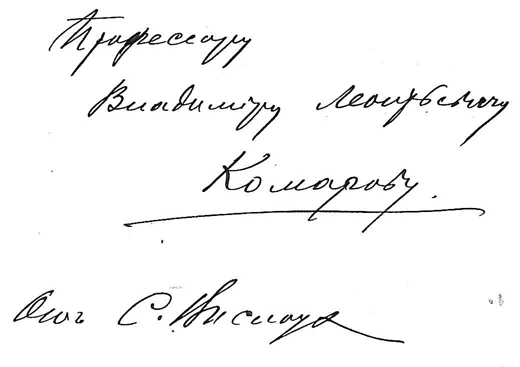 Профессору
Владиміру Леонтьевичу
Комарову.
Отъ С.